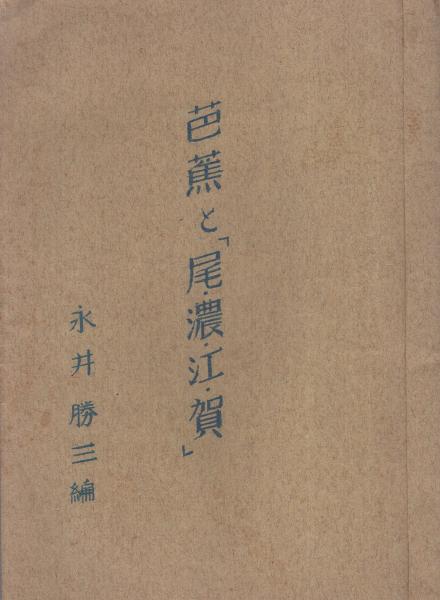 芭蕉と「尾・濃・江・賀」
永井勝三編